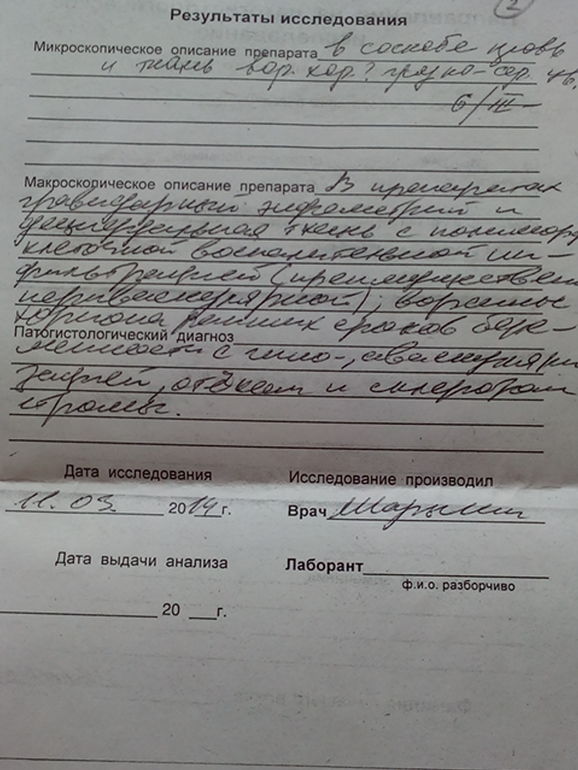 2
Результаты исследования
Микроскопическое описание препарата в соскобе кровь
и ткань вор. хор? серо-
6/III-
Макроскопическое описание препарата В препаратах
гравидарный эндометрий и
децидуальная ткань с полиморфно
клеточной воспалительной ин-
фильтрацией (преимуществен
периваскулярной); ворсины
хориона ранних сроков бере-
Патогистологический диагноз
менности с гипо-, аваскуляри
зацией, отёком и склерозом
стромы.
Дата исследования Исследование производил
11.03 2014г. Врач
Дата выдачи анализа Лаборант
ф.и.о. разборчиво
20 г.